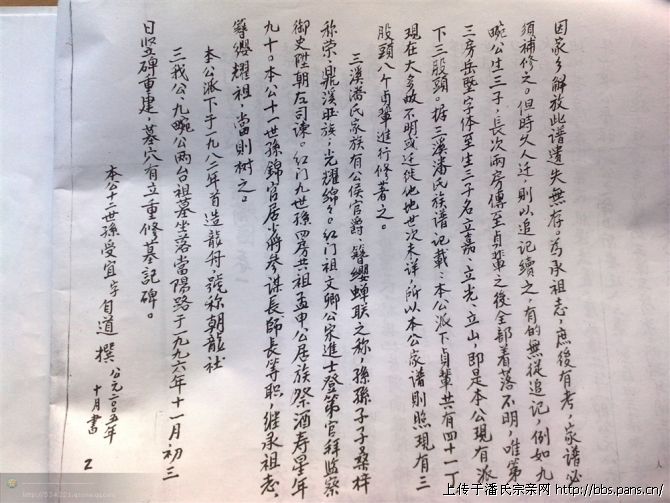 因家乡解放此譜遺失無存。為承祖志，庶後有考，家譜必
須補修之。但時久人迁，則以追记續之，有的無從追记，例如九
畹公生三子，長次兩房傳至貞輩之後全部着落不明，唯第
三房岳墅字体至生三子名立嘉、立光、立山，即是本公現有派
下三股頭。据三溪潘氏族譜記載：本公派下貞輩共有四十一丁
現在大多故不明或迁徙他地世次未详，所以本公家譜則照現有三
股頭八个貞輩進行修著之。
三溪潘氏家族有公侯官爵，簪纓蟬联之称，孫孫子子桑梓
称荣，鼎溪旺族，光耀綿々。红门祖文卿公宋進士登第官拜监察
御史陞朝左司諫。红门九世孫四房共祖孟申公居族祭酒寿星年
九十。本公十一世孫錦官居少將参謀長師長等职，继承祖志，
簪纓耀祖，當則树之。
本公派下于一九八二年首造龍舟，號称朝龍社
三我公、九畹公两台祖墓坐落當陽路于一九九六年十一月初三
日収立碑重建，墓穴有立重修墓記碑。
本公十二世孫受宜字自道 撰 公元二〇〇五年
十月書
2
上传于潘氏宗亲网 http://bbs.pans.cn/